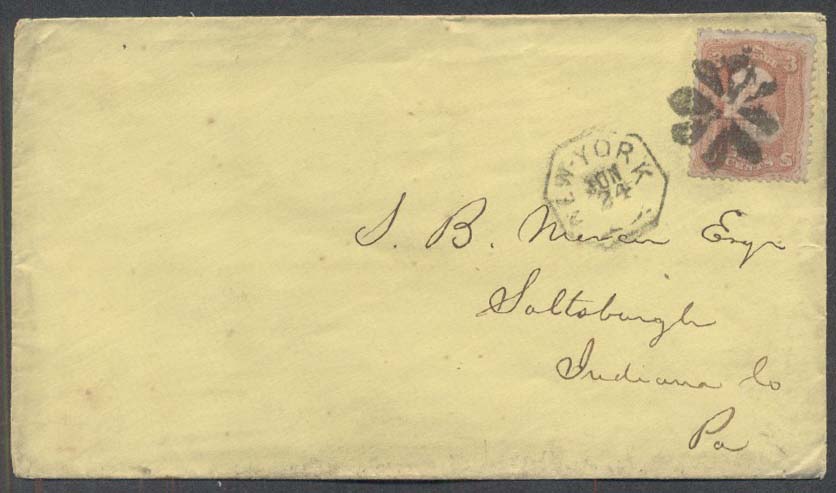 3
CENTS
NEW-YORK
JUN
24
S. B. Mercer Esqr
Saltsburgh
Indiana Co
Pa